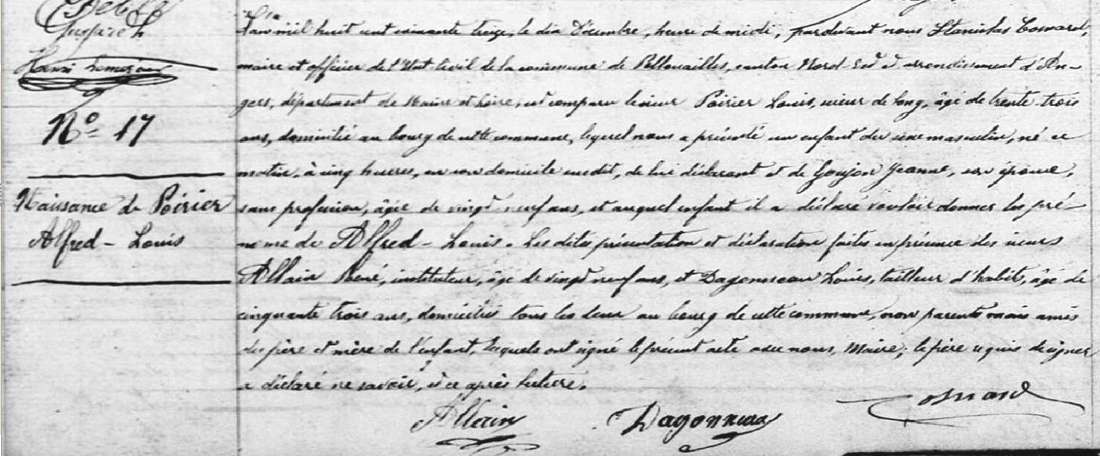 N° 17
Naissance de Poirier
Alfred - Louis
L'an mil huit cent soixante treize, le dix Décembre, heure de midi, pardevant nous Stanislas Cosnard,
maire et officier de l'Etat Civil de la commune de Pellouailles, canton Nord Est d' arrondissement d'An-
gers, département de Maine et Loire, est comparu le sieur Poirier Louis, scieur de long, âgé de trente trois
ans, domicilié au bourg de cette commune, lequel nous a présenté un enfant du sexe masculin, né ce
matin, à cinq heures, en son domicile susdit, de lui déclarant et de Goujon Jeanne, son épouse,
sans profession, âgée de vingt neuf ans, et auquel enfant il a déclaré vouloir donner les pré
noms de Alfred - Louis. Les dites présentation et déclaration faites en présence des sieurs
Allain René, instituteur, âgé de vingt neuf ans, et Dagonneau Louis, tailleur d'habits, âgé de
cinquante trois ans, domiciliés tous les deux au bourg de cette commune, non parents mais amis
des père et mère de l'enfant, lesquels ont signé le présent acte avec nous, Maire; le père requis de signer
a déclaré ne savoir, de ce après lecture.
Allain Dagonneau Cosnard